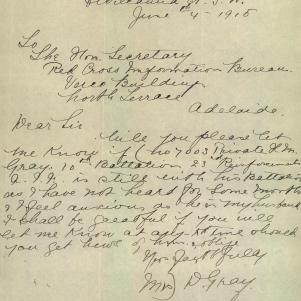 June 4 - 1918
To
The Hon. Secretary
Red Cross Information Bureau.
Verco Building
North Terrace
Adelaide.
Dear Sir
Will you please let
me know if (No 7003 Private
Gray. 10th Battalion 23rd Reinforcements
A.I.F. is still with his Battalion
as I have not heard for some months
& I feel anxious as he is my husband
I shall be grateful if you will
let me know at any time should
you get news of him & oblige
Yours faithfully
Mrs D Gray.